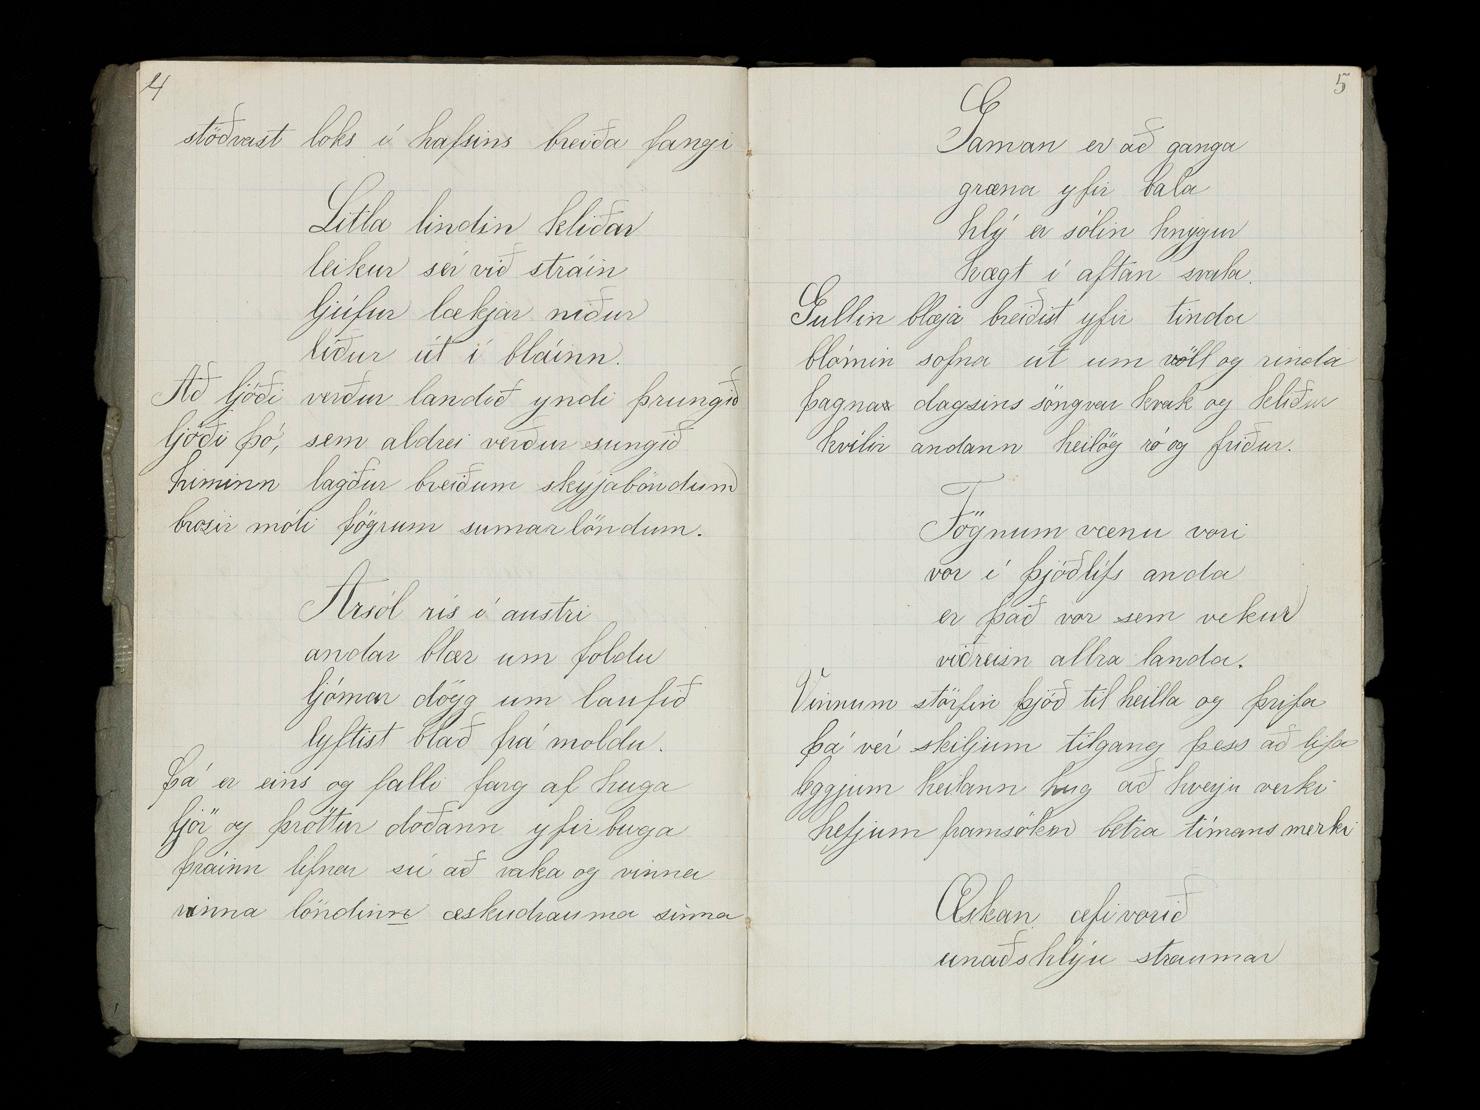 4
stöðvast loks í hafsins breiða fangi
Litla lindin kliðar
leikur sér við stráin
ljúfur lækjar niður
líður út í bláinn.
Að ljóði verður landið yndi þrungið
ljóði þó, sem aldrei verður sungið
himinn lagður breiðum skýjaböndum
brosir móti fögrum sumarlöndum.
Arsól rís í austri
andar blær um foldu
ljómar dögg um laufið
lyftist blað frá moldu.
Þá er eins og falli farg af huga
fjör og þróttur doðann yfirbuga
þráinn lifnar sú að vaka og vinna
vinna löndinn æskudrauma sinna
5
Gaman er að ganga
græna yfir bala
hlý er sólin hnígur
hægt í aftan svala.
Gullin blæja breiðist yfir tinda
blómin sofna út um völl og rinda
þagna dagsins söngvar kvak og kliður
hvílir andann heilög ró og friður.
Fögnum vænu vori
vor í þjóðlífs anda
er það vor sem vekur
viðreisn allra landa.
Vinnum störfin þjóð til heilla og þrifa
þá vér skiljum tilgang þess að lifa
leggjum heilann hug að hverju verki
hefjum framsóknar betra tímans merki
Æskan æfivorið
unaðshlýju straumar